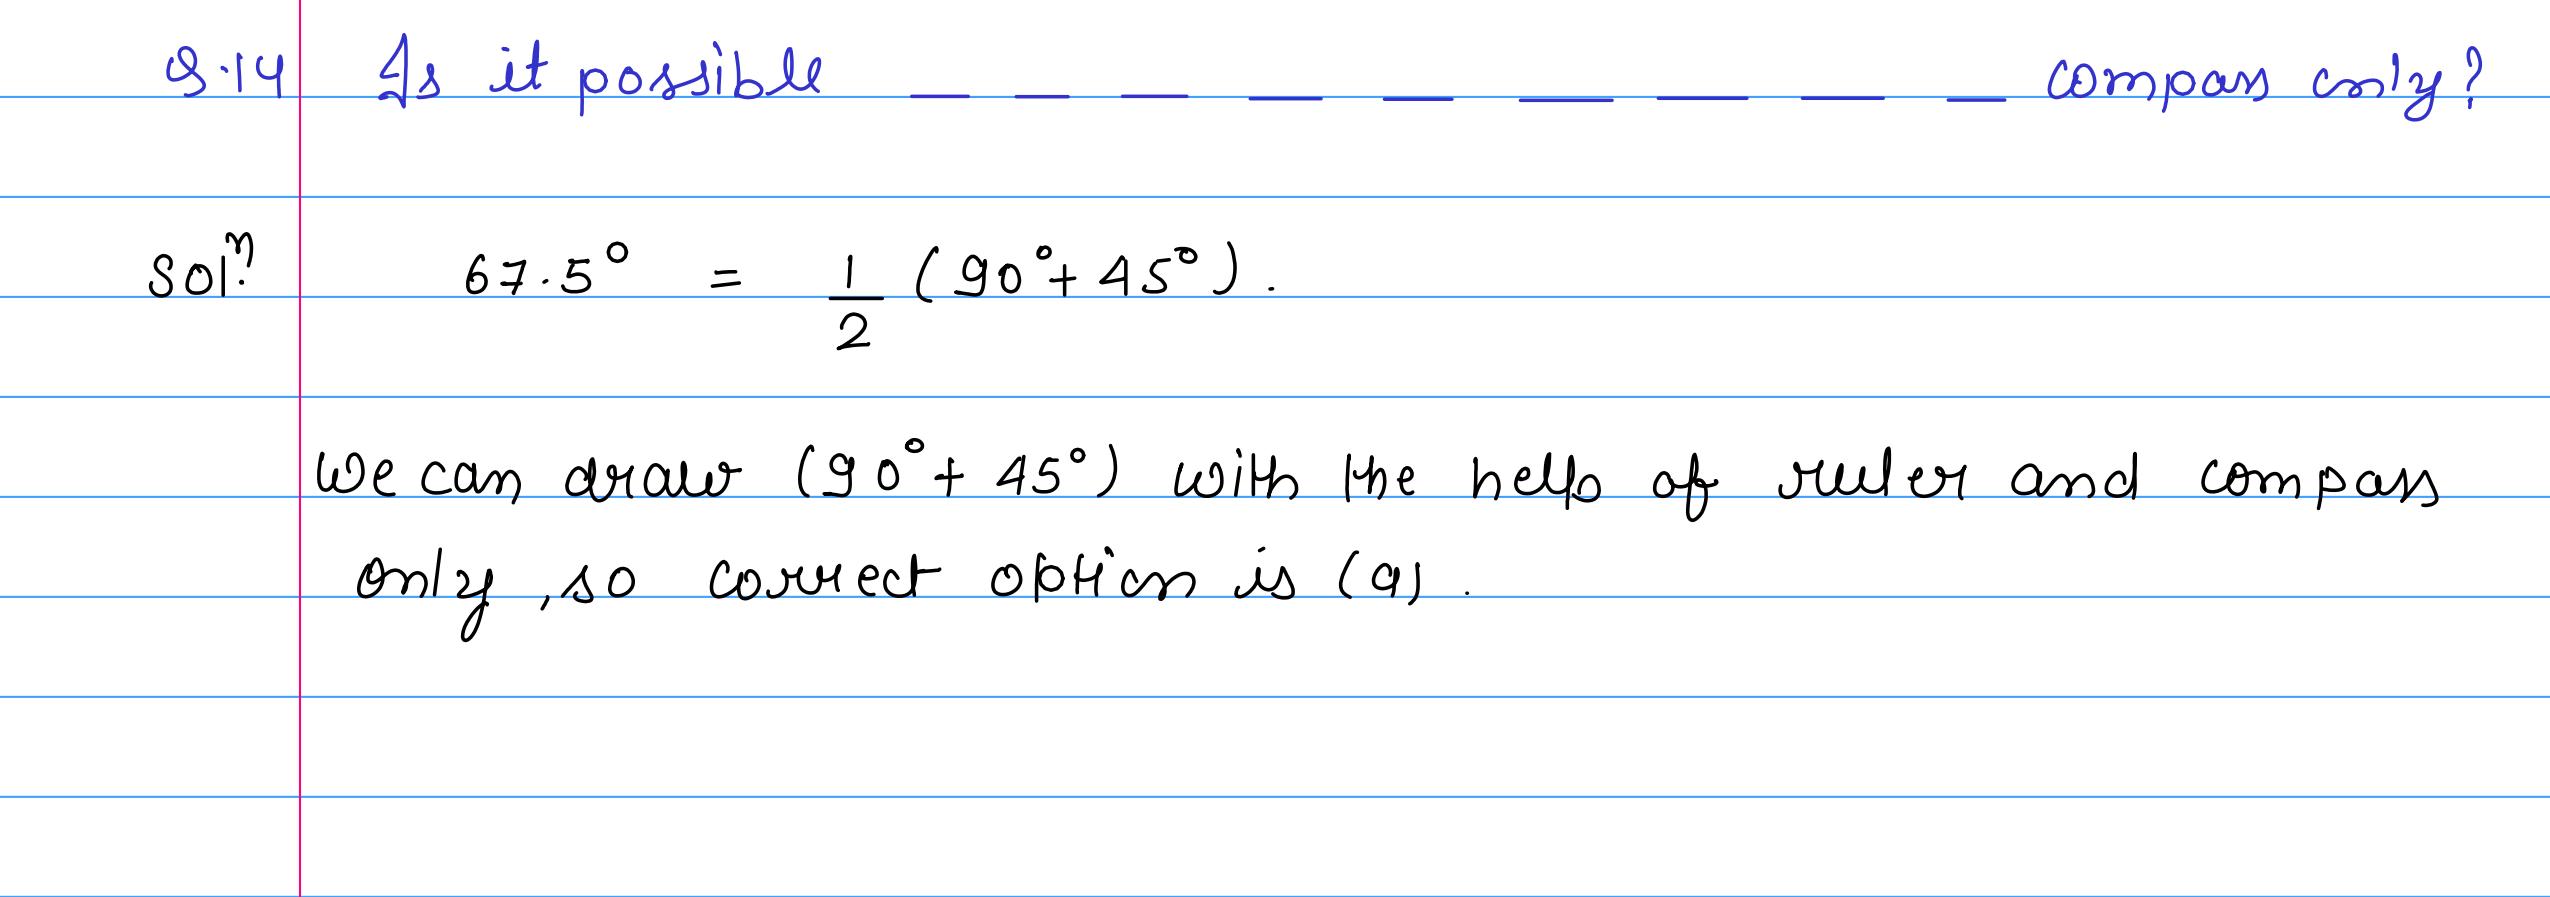 Q.14 Is it possible _ _ _ _ _ _ _ _ _ compass only?
Solⁿ. 67.5° = 1/2 (90° + 45°).
We can draw (90° + 45°) with the help of ruler and compass
only, so correct option is (a).